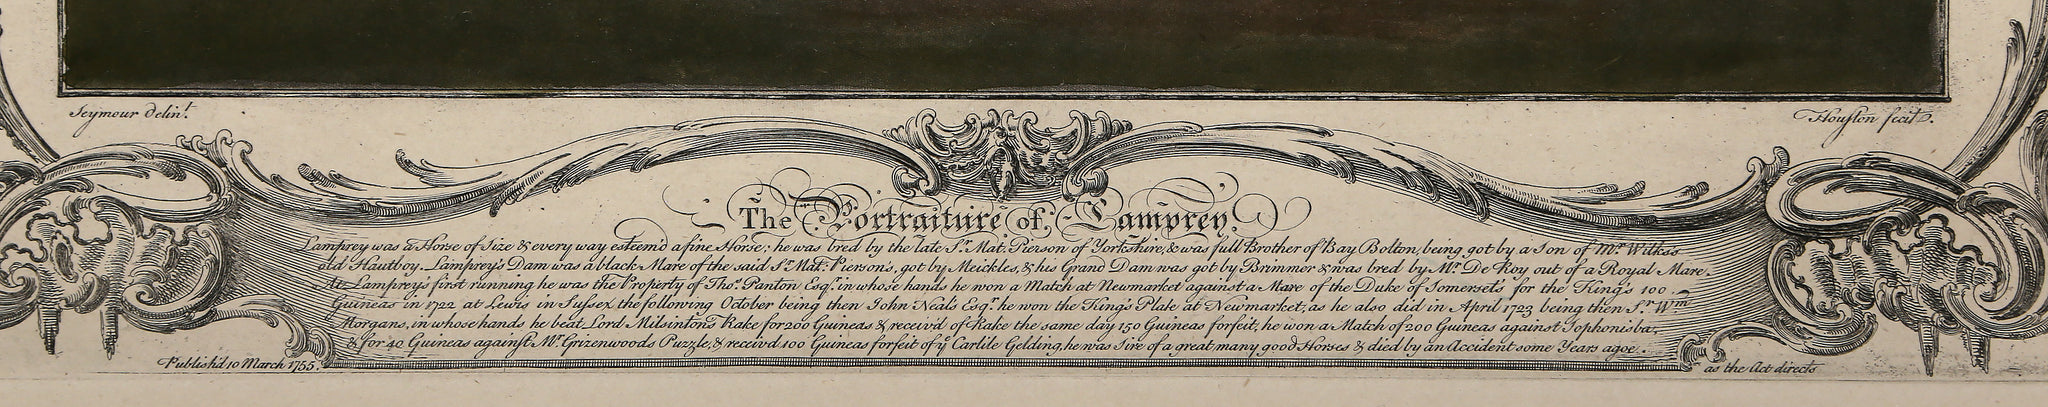 Seymour delin.t
Houston fecit.
The Portraiture of Lamprey.
Lamprey was a Horse of Size & every way esteem'd a fine Horse; he was bred by the late S.r Mat. Pierson of Yorkshire, & was full Brother of Bay Bolton, being got by a Son of M.r Wilkes's
old Hautboy. Lamprey's Dam was a black Mare of the said S.r Mat. Pierson's, got by Meickles, & his Grand Dam was got by Brimmer & was bred by M.r De Roy out of a Royal Mare.
At Lamprey's first running he was the Property of Tho.s Panton Esq.r in whose hands he won a Match at Newmarket against a Mare of the Duke of Somerset's for the King's 100
Guineas in 1722 at Lewis in Sussex the following October being then John Neals Esq.r he won the King's Plate at Newmarket; as he also did in April 1723 being then S.r W.m
Morgans, in whose hands he beat Lord Milsinton's Rake for 200 Guineas & receiv'd of Rake the same day 150 Guineas forfeit, he won a Match of 200 Guineas against Sophonisba,
& for 40 Guineas against M.r Grizenwoods Puzzle, & receiv'd 100 Guineas forfeit of y.e Carlile Gelding, he was Sire of a great many good Horses & died by an Accident some Years agoe.
Publish'd 10 March 1755.
as the Act directs